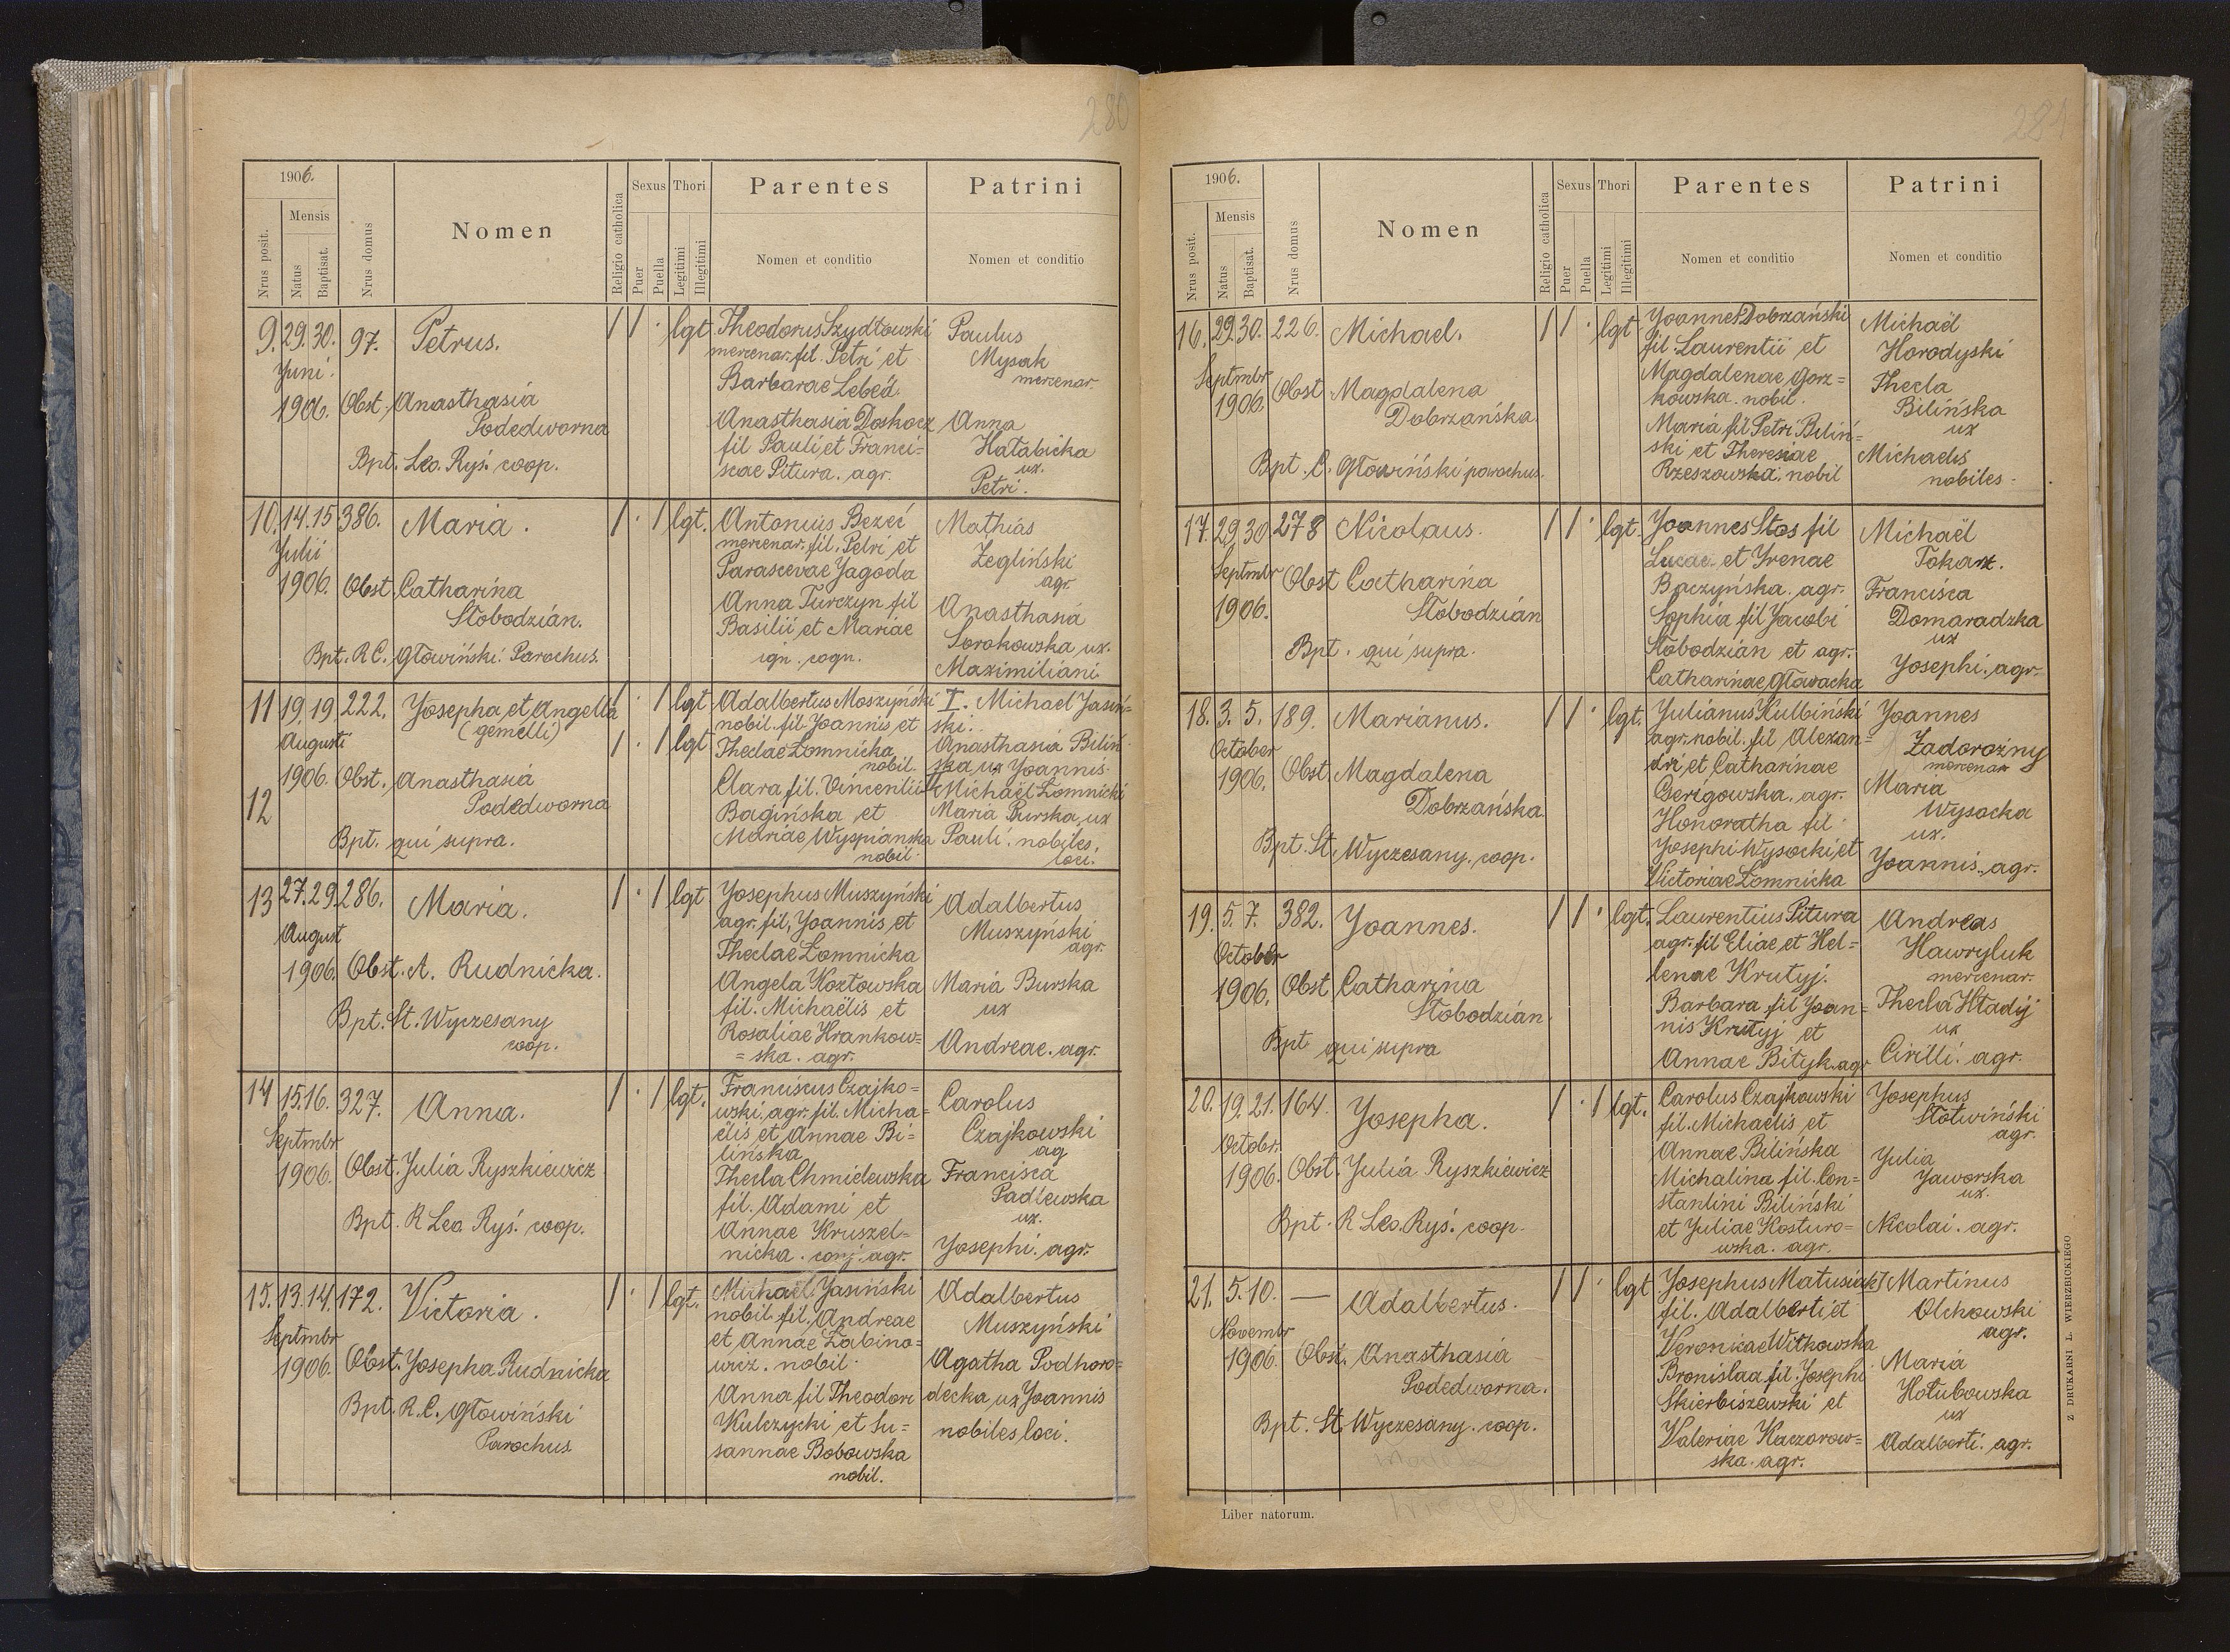 280
1906.
Nrus posit.
Mensis
Natus
Baptisat.
Nrus domus
Nomen
Religio catholica
Sexus
Puer
Puella
Thori
Legitimi
Illegitimi
Parentes
Nomen et conditio
Patrini
Nomen et conditio
9. 29. 30. 97. Petrus. / / · lgt
Juni.
1906. Obst. Anasthasia
Podedworna
Bpt. Leo. Ryś. coop.
Theodorus Szydłowski
mercenar. fil. Petri et
Barbarae Lebed.
Anasthasia Doskocz
fil Pauli et Franci=
scae Pitura. agr.
Paulus
Mysak
mercenar.
Anna
Hałabicka
ux.
Petri.
10. 14. 15 386. Maria. / · / lgt.
Julii
1906. Obst. Catharina
Słobodzian.
Bpt. R C. Głowiński. Parochus.
Antonius Bezeć
mercenar. fil. Petri et
Parascevae Jagoda
Anna Turczyn fil
Basilii et Mariae
ign. cogn.
Mathias
Żegliński
agr.
Anasthasia
Sorokowska ux.
Maximiliani
11 19. 19 222. Josepha et Angella / · / lgt
(gemelli) / · / lgt
Augusti
1906. Obst. Anasthasia
12 Podedworna
Bpt. qui supra.
Adalbertus Moszyński
nobil. fil. Joannis et
Theclae Łomnicka
nobil.
Clara fil. Vincentii
Bagińska et
Mariae Wyspianska
nobil.
I. Michael Jasiń=
ski.
Anasthasia Biliń
ska ux Joannis.
Michaël Łomnicki
Maria Burska, ux
Pauli. nobiles.
loci.
13 27. 29 286. Maria. / · / lgt
August
1906. Obst. A. Rudnicka.
Bpt. St. Wyczesany
coop.
Josephus Muszyński
agr. fil. Joannis et
Theclae Łomnicka
Angela Kozłowska
fil. Michaëlis et
Rosaliae Hrankow=
= ska. agr.
Adalbertus
Muszyński
agr.
Maria Burska
ux
Andreae. agr.
14 15. 16. 327. Anna. / · / lgt.
Septmbr
1906. Obst. Julia Ryszkiewicz
Bpt. R Leo. Ryś. coop.
Franciscus Czajko=
wski, agr. fil. Micha=
ëlis et Annae Bi=
lińska
Thecla Chmielewska
fil. Adami et
Annae Kruszel=
nicka. conj. agr.
Carolus
Czajkowski
ag
Francisca
Padlewska
ux.
Josephi. agr.
15. 13. 14. 172. Victoria. / · / lgt.
Septmbr
1906. Obst. Josepha Rudnicka
Bpt. R. C. Głowiński
Parochus
Michaël Jasiński
nobil. fil. Andreae
et Annae Łabino=
wicz. nobil.
Anna fil Theodori
Kulczycki et Su=
sannae Bobowska
nobil.
Adalbertus
Muszyński
Agatha Podhoro=
decka, ux Joannis
nobiles loci.
281
1906.
Nrus posit.
Mensis
Natus
Baptisat.
Nrus domus
Nomen
Religio catholica
Sexus
Puer
Puella
Thori
Legitimi
Illegitimi
Parentes
Nomen et conditio
Patrini
Nomen et conditio
16. 29. 30. 226. Michael. / / · lgt
Septmbr
1906. Obst Magdalena
Dobrzańska
Bpt. C. Głowiński parochus.
Joannes Dobrzański
fil. Laurentii et
Magdalenae Gorz=
kowska. nobil.
Maria fil Petri Biliń=
ski et Theresiae
Rzeszowska. nobil
Michaël
Horodyski
Thecla
Bilińska
ux
Michaelis
nobiles.
17. 29. 30 278 Nicolaus. / / · lgt.
Septmbr Obst Catharina
1906. Słobodzian
Bpt. qui supra.
Joannes Stos fil
Lucae et Irenae
Baczyńska. agr.
Sophia fil Jacobi
Słobodzian et agr.
Catharinae Głowacka
Michaël
Tokarz.
Francisca
Domaradzka
ux
Josephi. agr.
18. 3. 5. 189. Marianus. / / · lgt.
October
1906. Obst Magdalena
Dobrzańska.
Bpt. St. Wyczesany. coop.
Julianus Kulbiński
agr. nobil. fil Alexan=
dri et Catharinae
Gerigowska. agr.
Honoratha fil
Josephi Wysocki, et
Victoriae Łomnicka
Joannes
Zadorożny
mercenar
Maria
Wysocka
ux.
Joannis. agr.
19. 5. 7. 382. Joannes. / / · lgt.
October
1906. Obst Catharina
Słobodzian.
Bpt qui supra
Laurentius Pitura
agr. fil Eliae et Hel=
lenae Krutyj.
Barbara fil Joan=
nis Krutyj et
Annae Bityk. agr
Andreas
Hawryluk
mercenar.
Thecla Hładij
ux
Cirilli. agr.
20. 19. 21. 164. Josepha. / · / lgt.
Octobr.
1906. Obst. Julia Ryszkiewicz
Bpt. R Leo. Ryś. coop.
Carolus Czajkowski
fil. Michaëlis et
Annae Bilińska
Michalina fil. Con=
stantini Biliński
et Juliae Kosturo=
wska. agr.
Josephus
Słotwiński
agr.
Julia
Jaworska
ux.
Nicolai. agr.
21. 5. 10. — Adalbertus. / / · lgt
Novembr
1906. Obst. Anasthasia
Podedworna.
Bpt. St. Wyczesany. coop.
Josephus Matusiak
fil. Adalberti et
Veronicae Witkowska
Bronislaa fil. Josephi
Skierbiszewski et
Valeriae Kaczorow=
ska. agr.
Martinus
Olchowski
agr.
Maria
Hołubowska
ux
Adalberti. agr.
Liber natorum.
Z DRUKARNI L. WIERZBICKIEGO